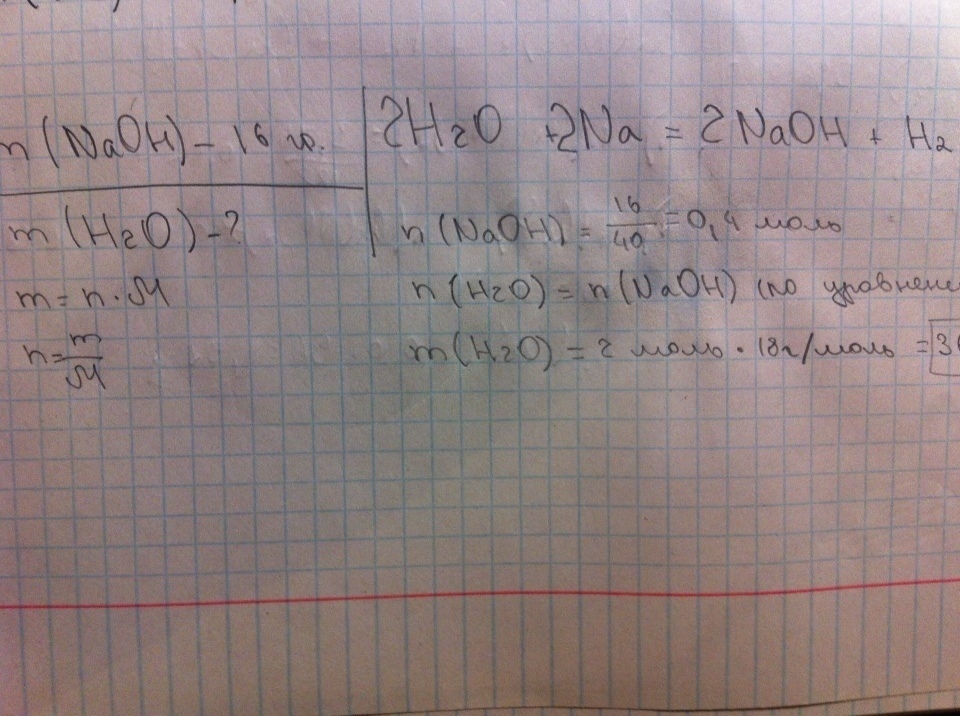 n (NaOH) – 16 гр.
m (H2O) – ?
m = n · M
n = m/M
2H2O + 2Na = 2NaOH + H2
n (NaOH) = 16/40 = 0,4 моль
n (H2O) = n (NaOH) (по уравнени
m (H2O) = 2 моль · 18г/моль = 3